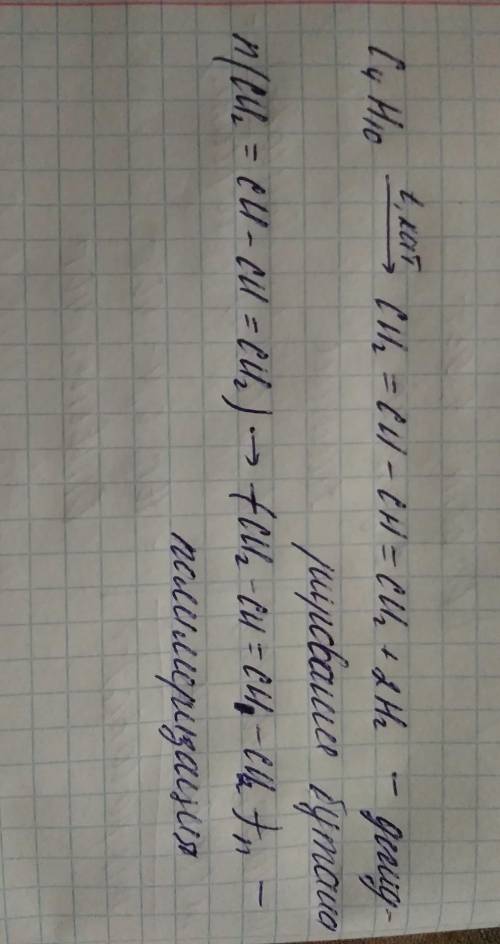 C₄H₁₀ —t, кат→ CH₂ = CH – CH = CH₂ + 2H₂ – дегид-
рирование бутана
n(CH₂ = CH – CH = CH₂) → (-CH₂ – CH = CH – CH₂-)n –
полимеризация